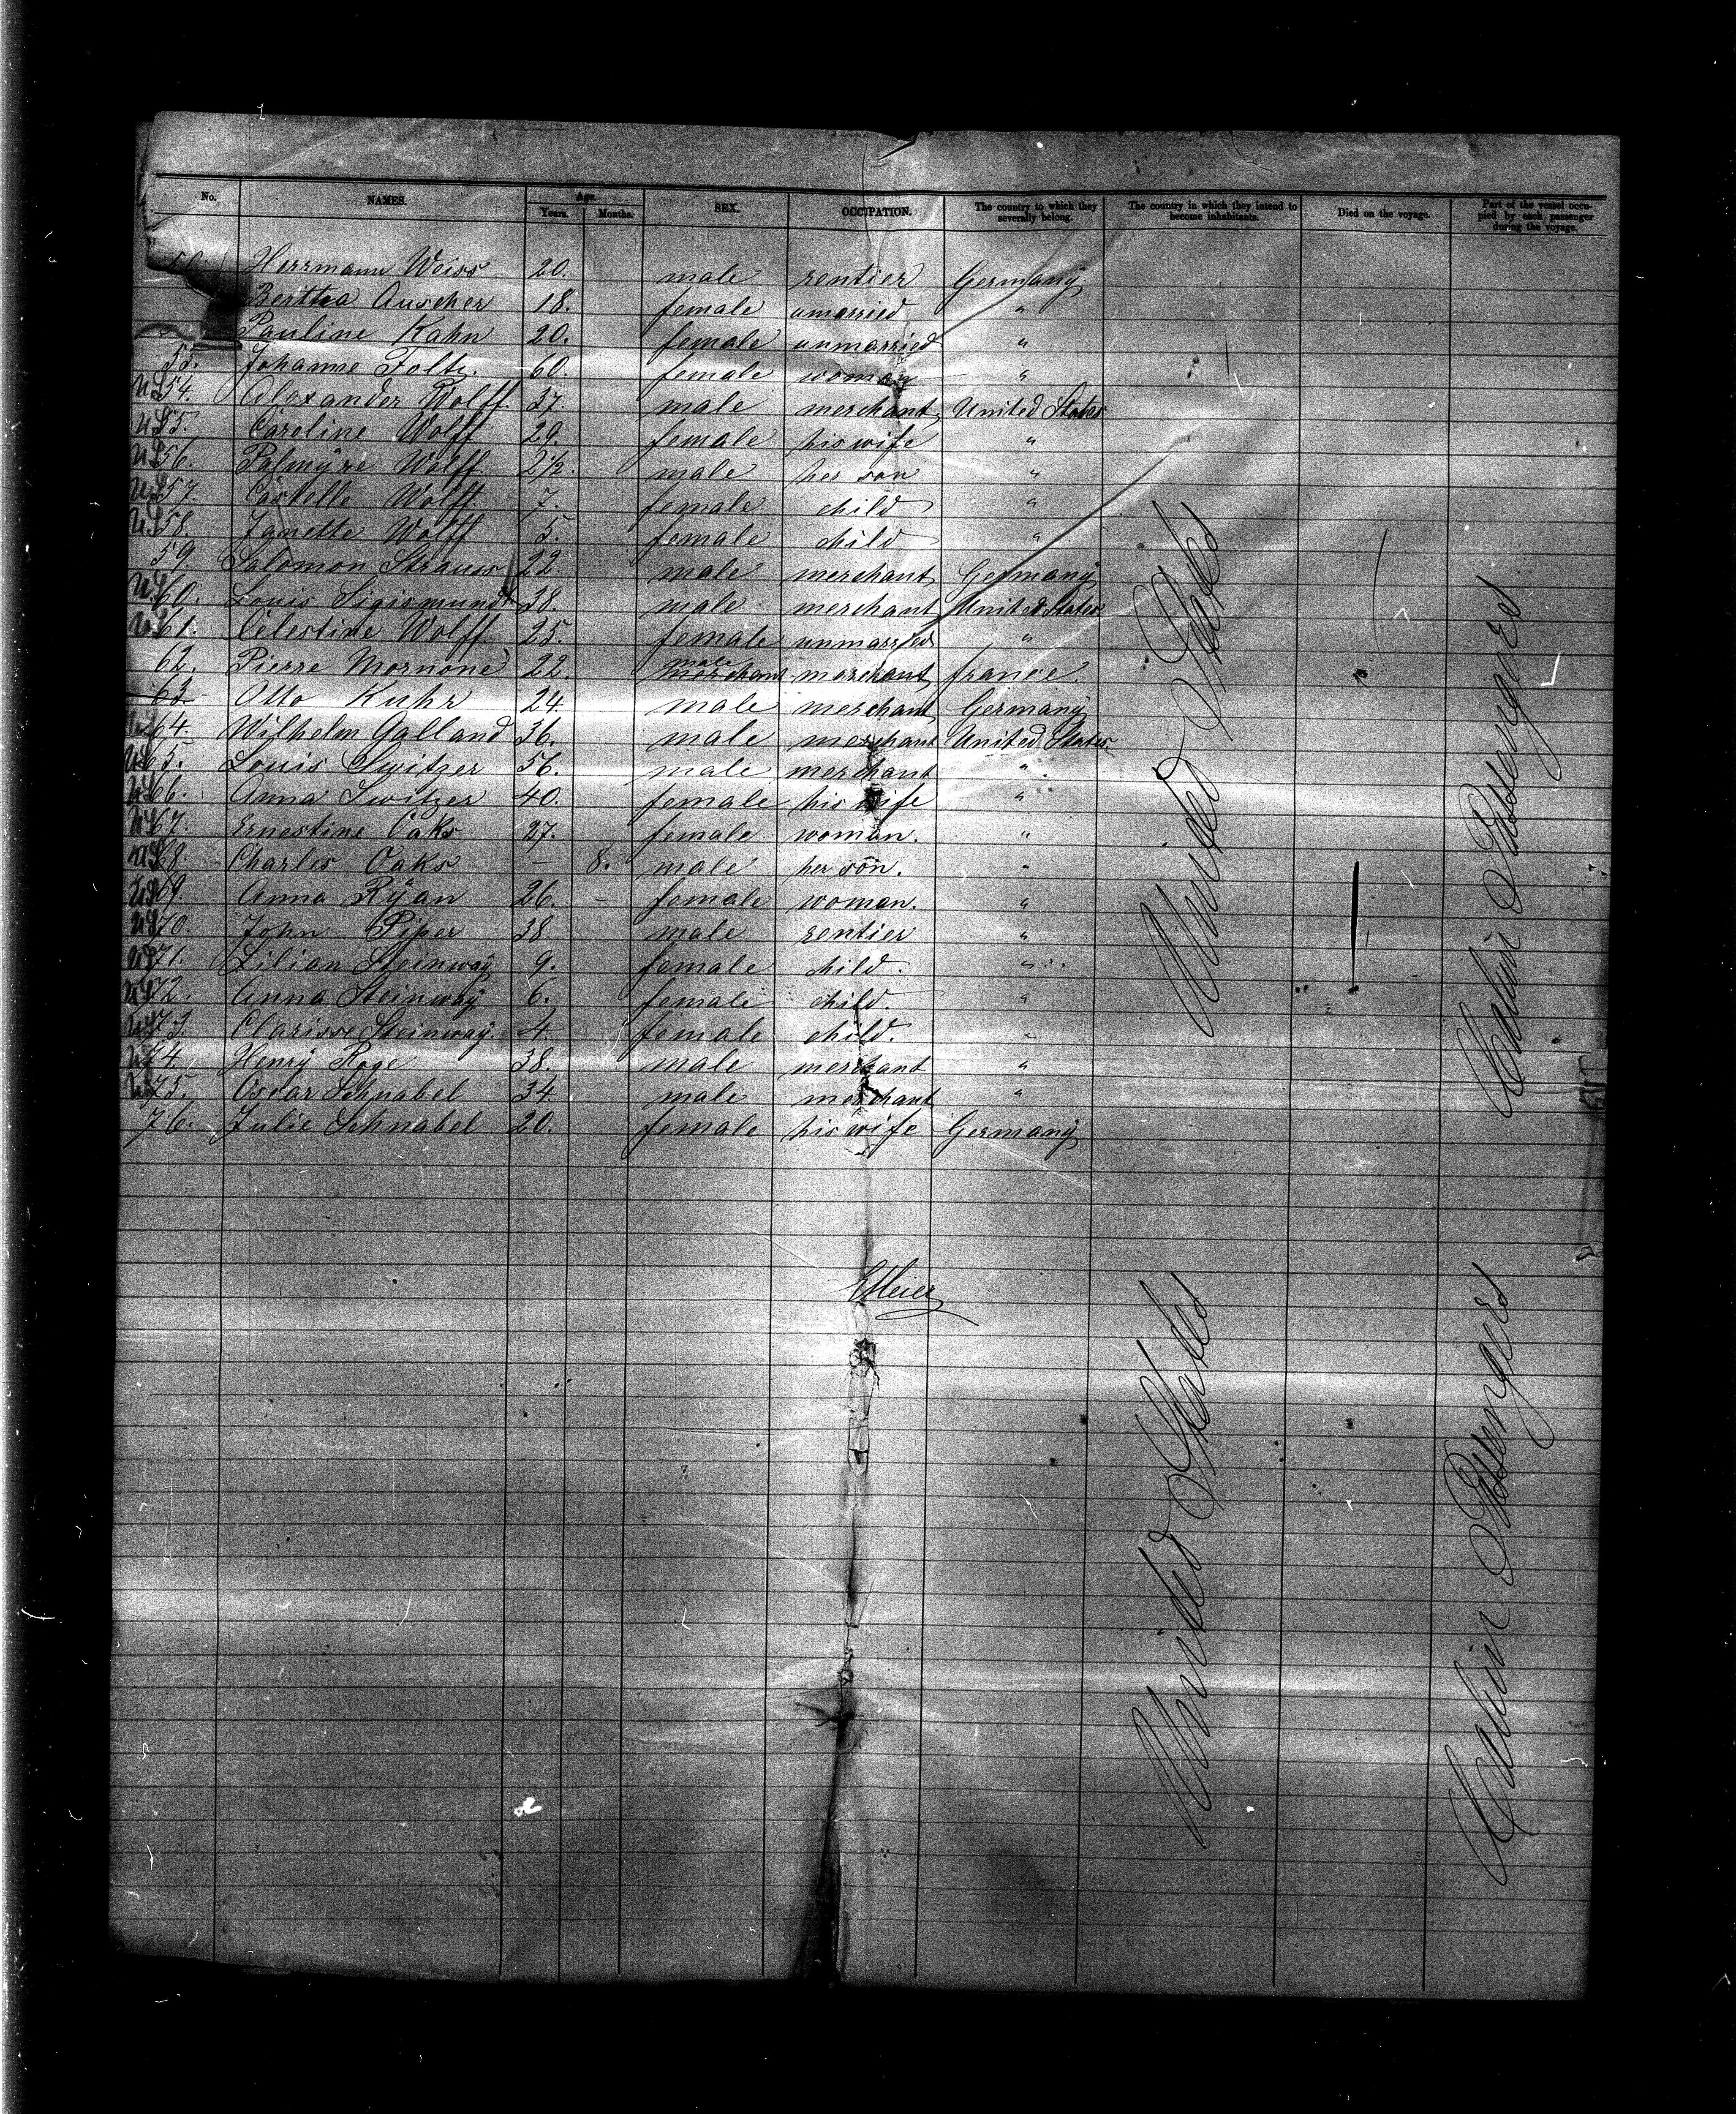 No. NAMES. Age. Years. Months. SEX. OCCUPATION. The country to which they severally belong. The country in which they intend to become inhabitants. Died on the voyage. Part of the vessel occupied by each passenger during the voyage.
Herrmann Weiss 20. male rentier Germany
Bertha Auscher 18. female umarried "
Pauline Kahn 20. female unmarried "
53. Johanne Foltz. 60. female woman "
US 54. Alexander Wolff 37. male merchant United States
US 55. Careline Wolff 29. female his wife "
US 56. Palmÿre Wolff 2½. male her son "
US 57. Wolff 7. female child "
US 58. Janette Wolff 5. female child "
59. Salomon Strauss 22. male merchant Germany
US 60. Louis Sigismund 38. male merchant United States
US 61. Celestine Wolff 25. female unmarried "
62. Pierre Mornone 22. male merchant france.
63 Otto Kuhr 24 male merchant Germany
US 64. Wilhelm Galland 36. male merchant United States.
US 65. Louis Switzer 56. male merchant "
US 66. Anna Switzer 40. female his wife "
US 67. Ernestine Oaks 27. female woman. "
US 68. Charles Oaks — 8. male her son. "
US 69. Anna Rÿan 26. – female woman. "
US 70. John Piper 38 male rentier "
US 71. Lilian Steinway 9. female child. "
US 72. Anna Steinway 6. female child. "
US 73. Clarisse Steinway. 4 female child. "
US 74. Henrÿ Roge 38. male merchant "
US 75. Oscar Schnabel 34. male merchant "
76. Julie Schnabel 20. female his wife Germany
United States
Cabin Passengers
EMeier
United States
Cabin Passengers